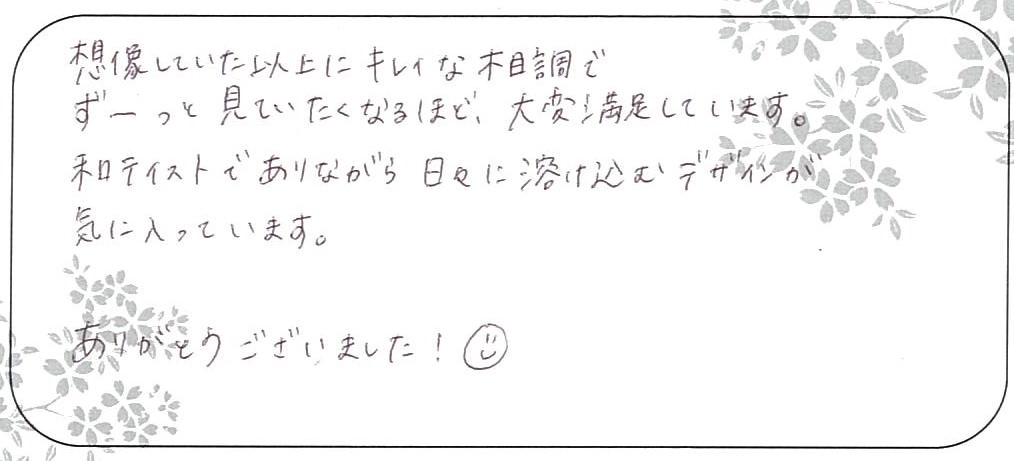 想像していた以上にキレイな木目調で
ずーっと見ていたくなるほど、大変満足しています。
和テイストでありながら日々に溶け込むデザインが
気に入っています。
ありがとうございました!